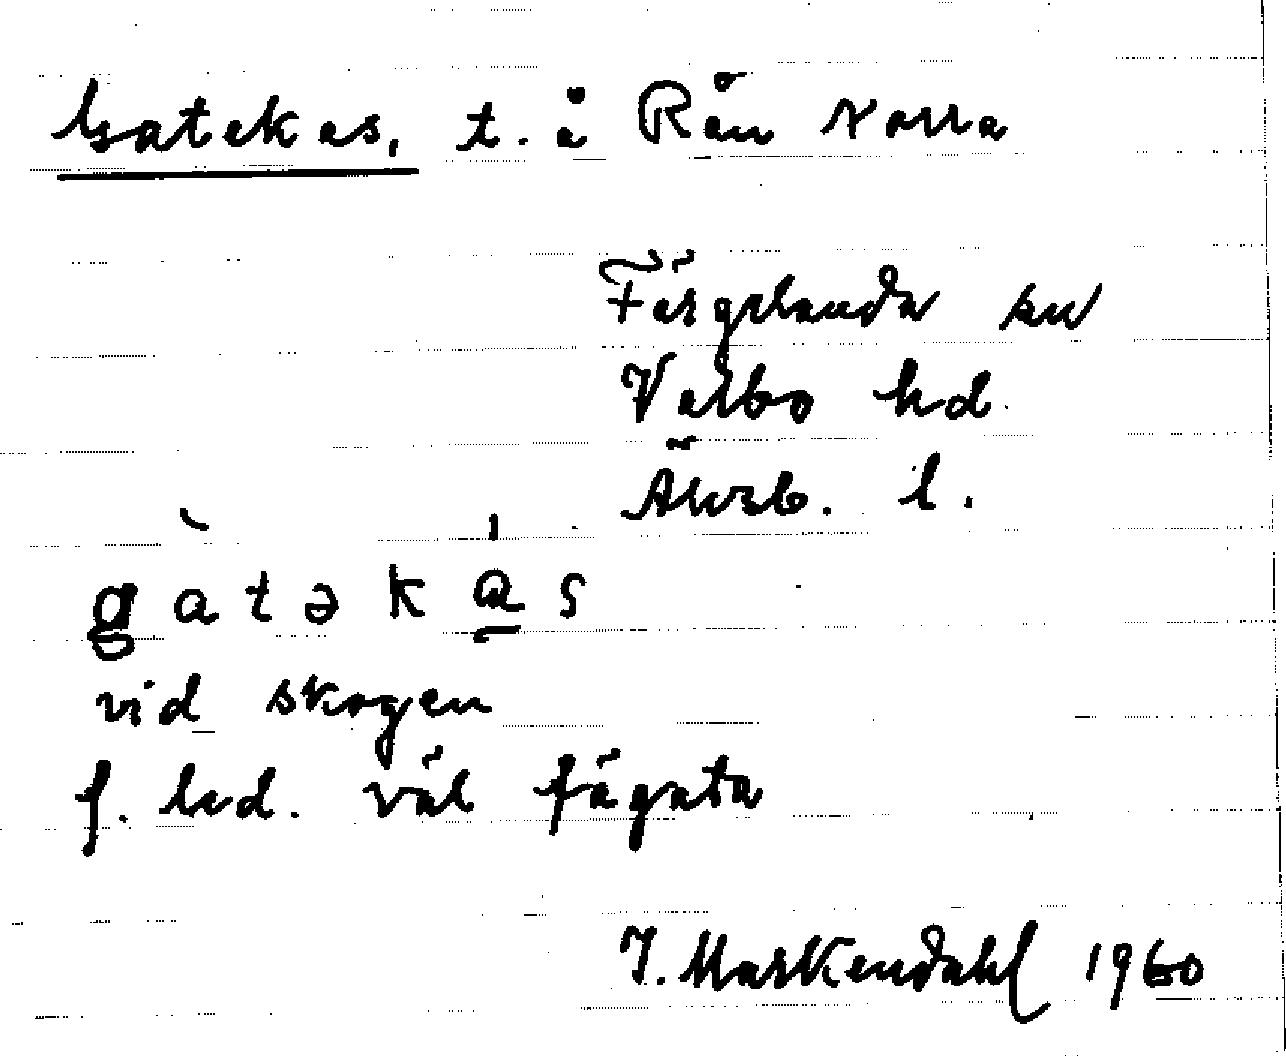 Gatekas, t. å Rån Norra
Färgelanda sn
Valbo hd.
Älvsb. l.
gàtəka̱s
vid skogen
f. led. väl fägata
I. Markendahl 1960